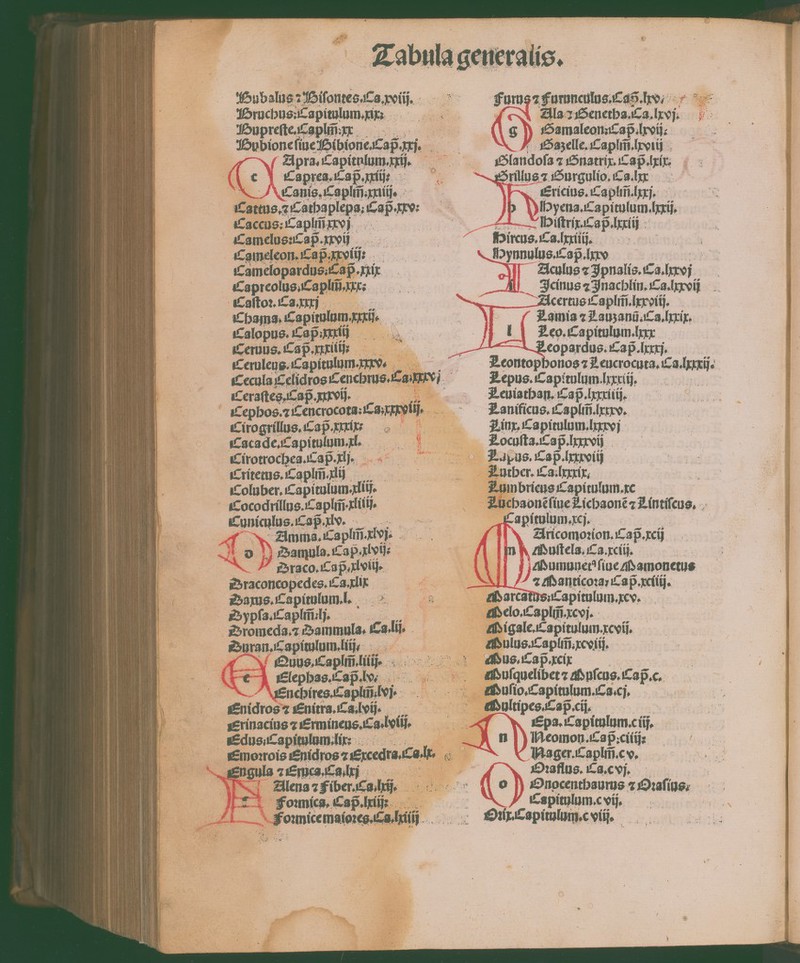 Tabula generalis.
Bubalus ⁊ Bisontes.Ca.xviij.
Bruchus.Capitulum.xix.
Bupreste.Caplm̄.xx
Bubione siue Bibione.Cap̄.xxj.
c Apra. Capitulum.xxij.
Caprea. Cap̄.xxiij:
Canis. Caplm̄.xxiiij.
Cattus.⁊ Cathaplepa: Cap̄.xxv:
Caccus: Caplm̄ xxvj
Camelus:Cap̄.xxvij
Cameleon. Cap̄.xxviij:
Camelopardus:Cap̄.xxix
Capreolus.Caplm̄.xxx:
Castor. Ca.xxxj
Chama. Capitulum.xxxij.
Calopus. Cap̄:xxxiij
Ceruus. Cap̄.xxxiiij:
Ceruleus. Capitulum.xxxv.
Cecula Celidros Cenchrus.Ca:xxxvj
Cerastes.Cap̄.xxxvij.
Cephos.⁊ Cencrocota: Ca:xxxviij.
Cirogrillus. Cap̄.xxxix:
Cacade.Capitulum.xl.
Cirotrochea.Cap̄.xlj.
Critetus. Caplm̄.xlij
Coluber. Capitulum.xliij.
Cocodrillus. Caplm̄.xliiij.
Cuniculus.Cap̄.xlv.
D Amma. Caplm̄.xlvj.
Damula. Cap̄.xlvij:
Draco. Cap̄.xlviij.
Draconcopedes. Ca.xlix
Daxus. Capitulum.l.
Dypsa.Caplm̄.lj.
Dromeda.⁊ Dammula. Ca.lij.
Duran.Capitulum.liij.
e Quus.Caplm̄.liiij.
Elephas.Cap̄.lv.
Enchires.Caplm̄.lvj.
Enidros ⁊ Enitra. Ca.lvij.
Erinacius ⁊ Ermineus.Ca.lviij.
Edus.Capitulum.lix:
Emorrois Enidros ⁊ Excedra.Ca.lx.
Engula ⁊ Eruca.Ca.lxj
f Alena ⁊ Fiber.Ca.lxij.
Formica. Cap̄.lxiij:
Formice maiores.Ca.lxiiij
Furus ⁊ Furunculus.Cap̄.lxv.
g Ala ⁊ Genetha.Ca.lxvj.
Gamaleon:Cap̄.lxvij:
Gazelle. Caplm̄.lxviij
Glandosa ⁊ Gnatrix. Cap̄.lxix.
Grillus ⁊ Gurgulio. Ca.lxx
h Ericius. Caplm̄.lxxj.
Hyena.Capitulum.lxxij.
Histrix.Cap̄.lxxiij
Hircus. Ca.lxxiiij.
Hynnulus.Cap̄.lxxv
Aculus ⁊ Ipnalis. Ca.lxxvj
Icinus ⁊ Inachlin. Ca.lxxvij
l Acertus Caplm̄.lxxviij.
Lamia ⁊ Lauzanū.Ca.lxxix.
Leo.Capitulum.lxxx
Leopardus. Cap̄.lxxxj.
Leontophonos ⁊ Leucrocuta. Ca.lxxxij.
Lepus. Capitulum.lxxxiij.
Leuiathan. Cap̄.lxxxiiij.
Lanificus. Caplm̄.lxxxv.
Linx. Capitulum.lxxxvj
Locusta.Cap̄.lxxxvij
Lupus. Cap̄.lxxxviij
Luther. Ca.lxxxix.
Lumbricus Capitulum.xc
Luchaonē siue Lichaonē ⁊ Lintiscus.
Capitulum.xcj.
m Aricomorion. Cap̄.xcij
Mustela. Ca.xciij.
Mumunet⁹ siue Mamonetus
⁊ Manticora: Cap̄.xciiij.
Marcatus:Capitulum.xcv.
Melo.Caplm̄.xcvj.
Migale.Capitulum.xcvij.
Mulus.Caplm̄.xcviij.
Mus.Cap̄.xcix
Musquelibet ⁊ Muscus. Cap̄.c.
Musio.Capitulum.Ca.cj.
Multipes.Cap̄.cij.
n Epa. Capitulum.ciij.
Neomon. Cap̄:ciiij:
Nager.Caplm̄.cv.
o Oraflus. Ca.cvj.
Onocenthaurus ⁊ Orasius.
Capitulum.cvij.
Orix.Capitulum.cviij.